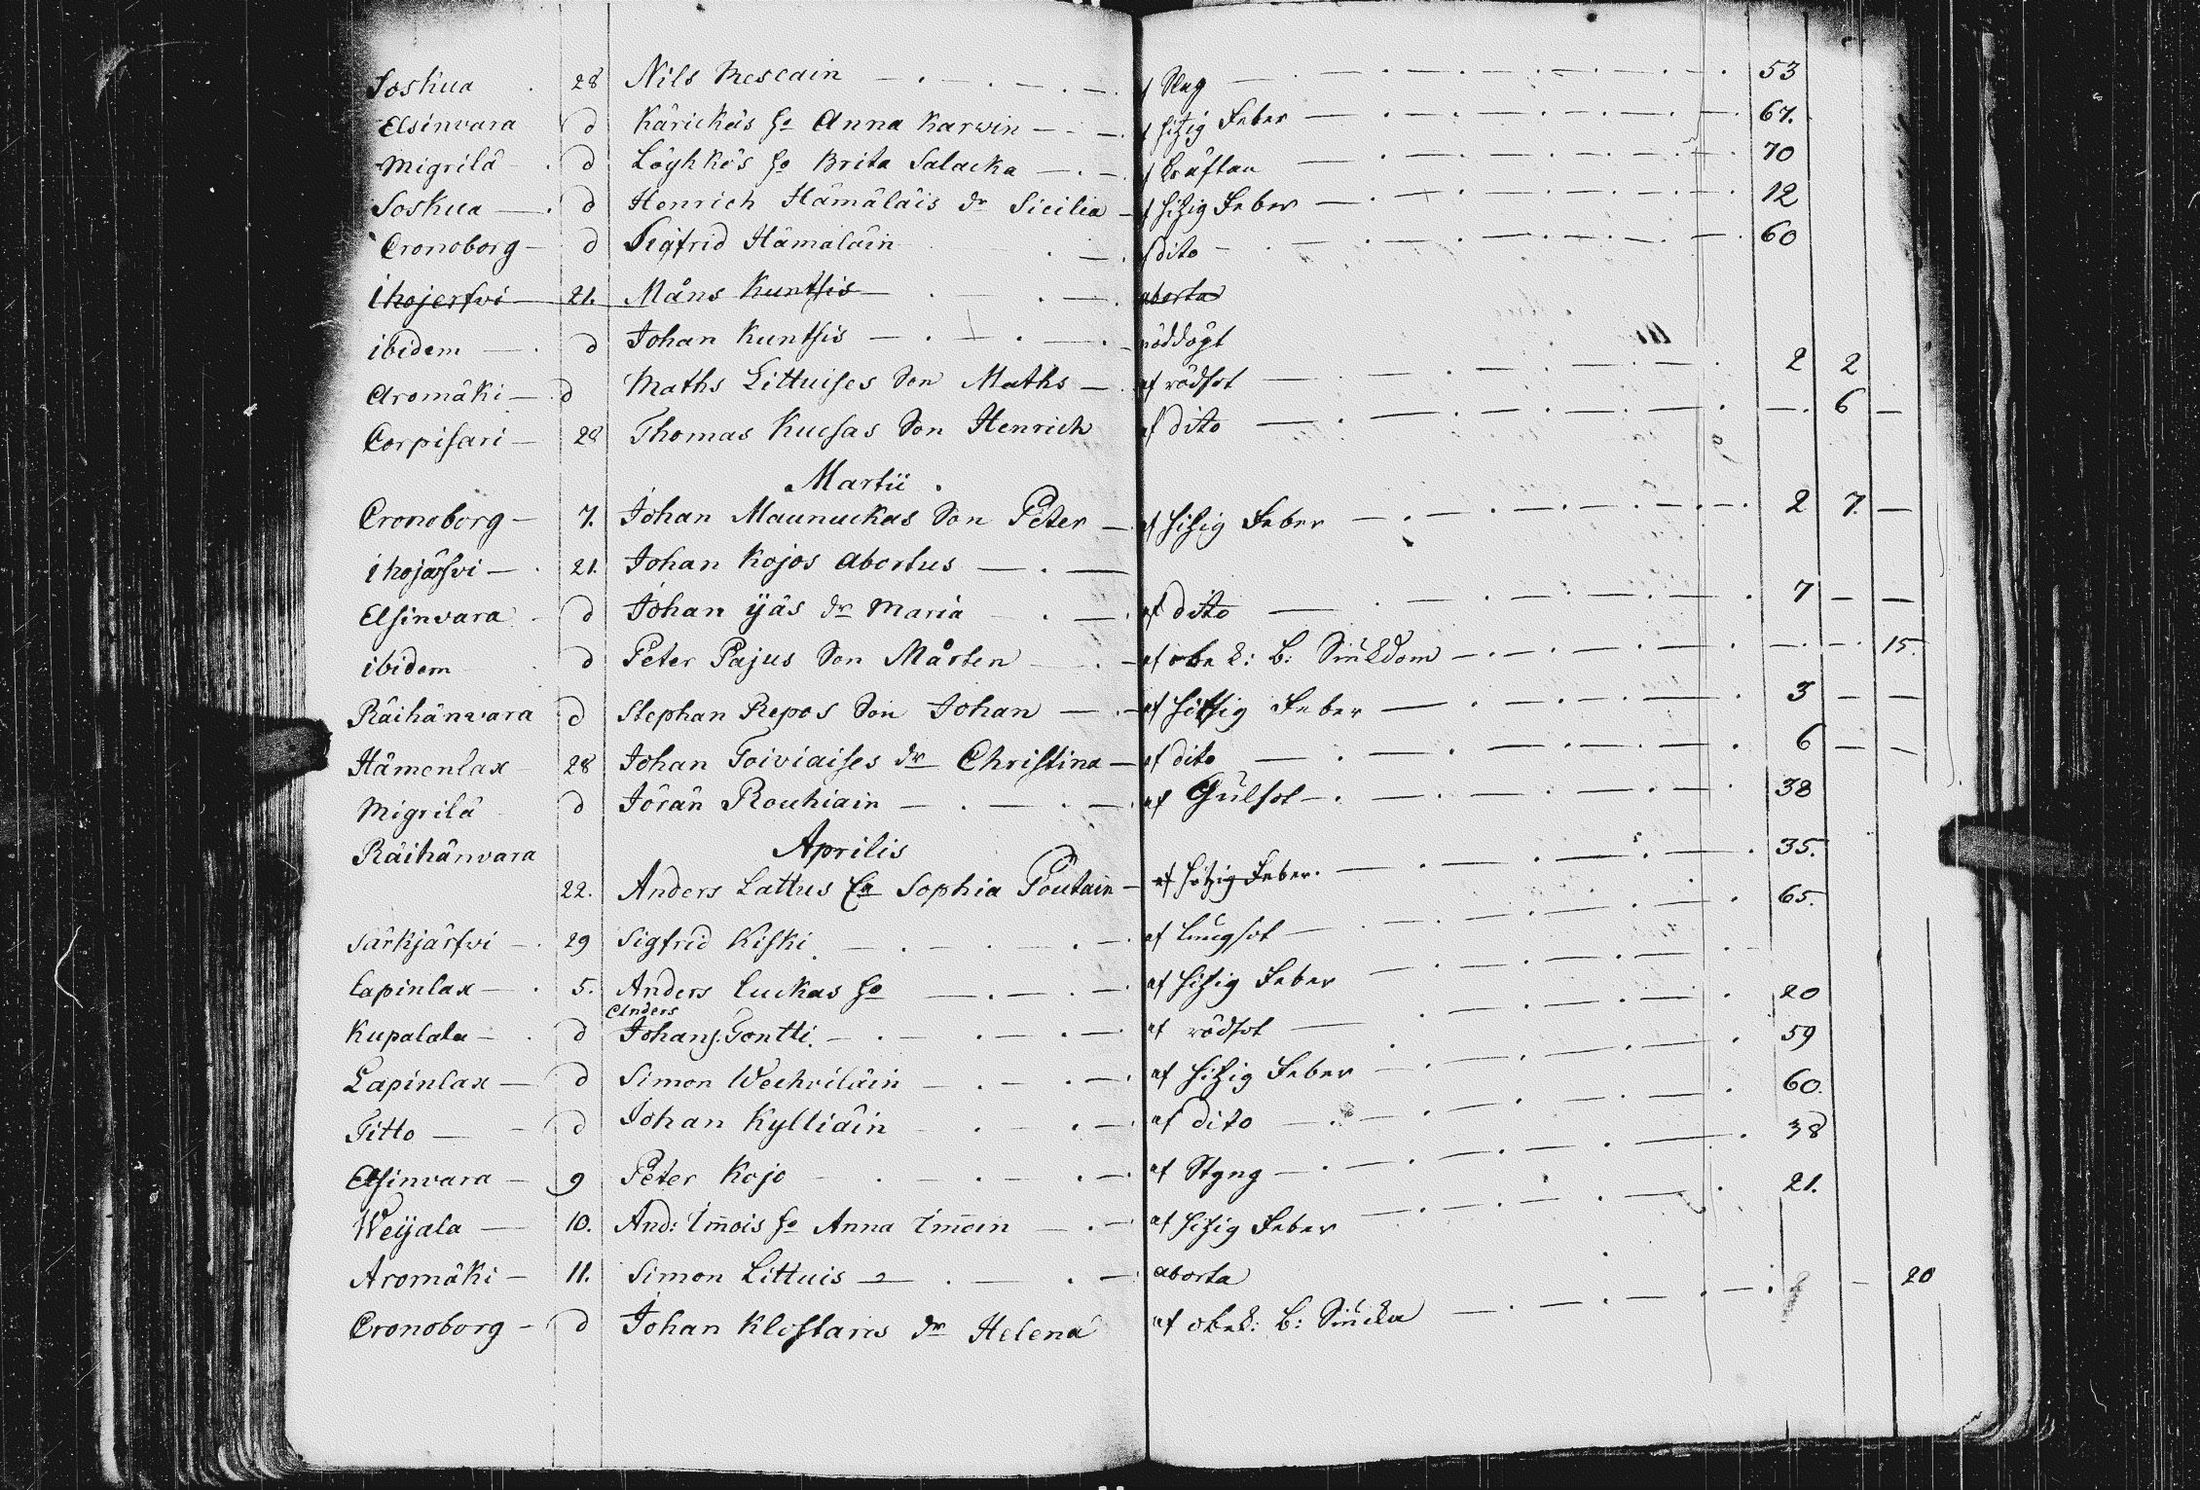 Soskua 28 Nils Meskain af Slag 53
Elsinvara d Kärickäs ho Anna Karvin af hitzig Feber 67.
Migrilä d Löyhkös ho Brita Salacka af Kräftan 70
Soskua d Henrich Hämäläis dr Sicilia af hitzig Feber 12
Cronoborg d Sigfrid Hämäläin af dito 60
Ihojerfvi 21. Måns Kuntsis aborta
ibidem d Johan Kuntsis nöddöpt
Aromäki d Maths Littuises Son Maths af rödsot 2 2
Corpisari 28 Thomas Kucsas Son Henrich af dito 6
Martii
Cronoborg 7. Johan Maunuckas Son Peter af hitzig Feber 2 7
Ihojärfvi 21. Johan Kojos abortus
Elsinvara d Johan Yjäs dr Maria af dito 7
ibidem d Peter Pajus Son Mårten af obek: B: Siukdom 15.
Räihänvara d Stephan Repos Son Johan af hitzig Feber 3
Hämenlax 28 Johan Toiviaises dr Christina af dito 6
Migrilä d Jöran Rouhiain af Gulsot 38
Räihänvara Aprilis
22. Anders Lattus Ea Sophia Poutain af hitzig Feber. 35.
Särkjärfvi 29 Sigfrid Kiski af Lungsot 65.
Lapinlax 5. Anders Luckas ho af hitzig Feber
Anders
Kupalala d Johans. Tontti. af rödsot 20
Lapinlax d Simon Wechviläin af hitzig Feber 59
Titto d Johan Kylliäin af dito 60.
Elsinvara 9 Peter Kojo af Styng 38
Weijala 10. And: Im̄ois ho Anna Im̄oin af hitzig Feber 21.
Aromäki 11. Simon Littuis aborta
Cronoborg d Johan Klostares dr Helena af obek: B: Siucka 20